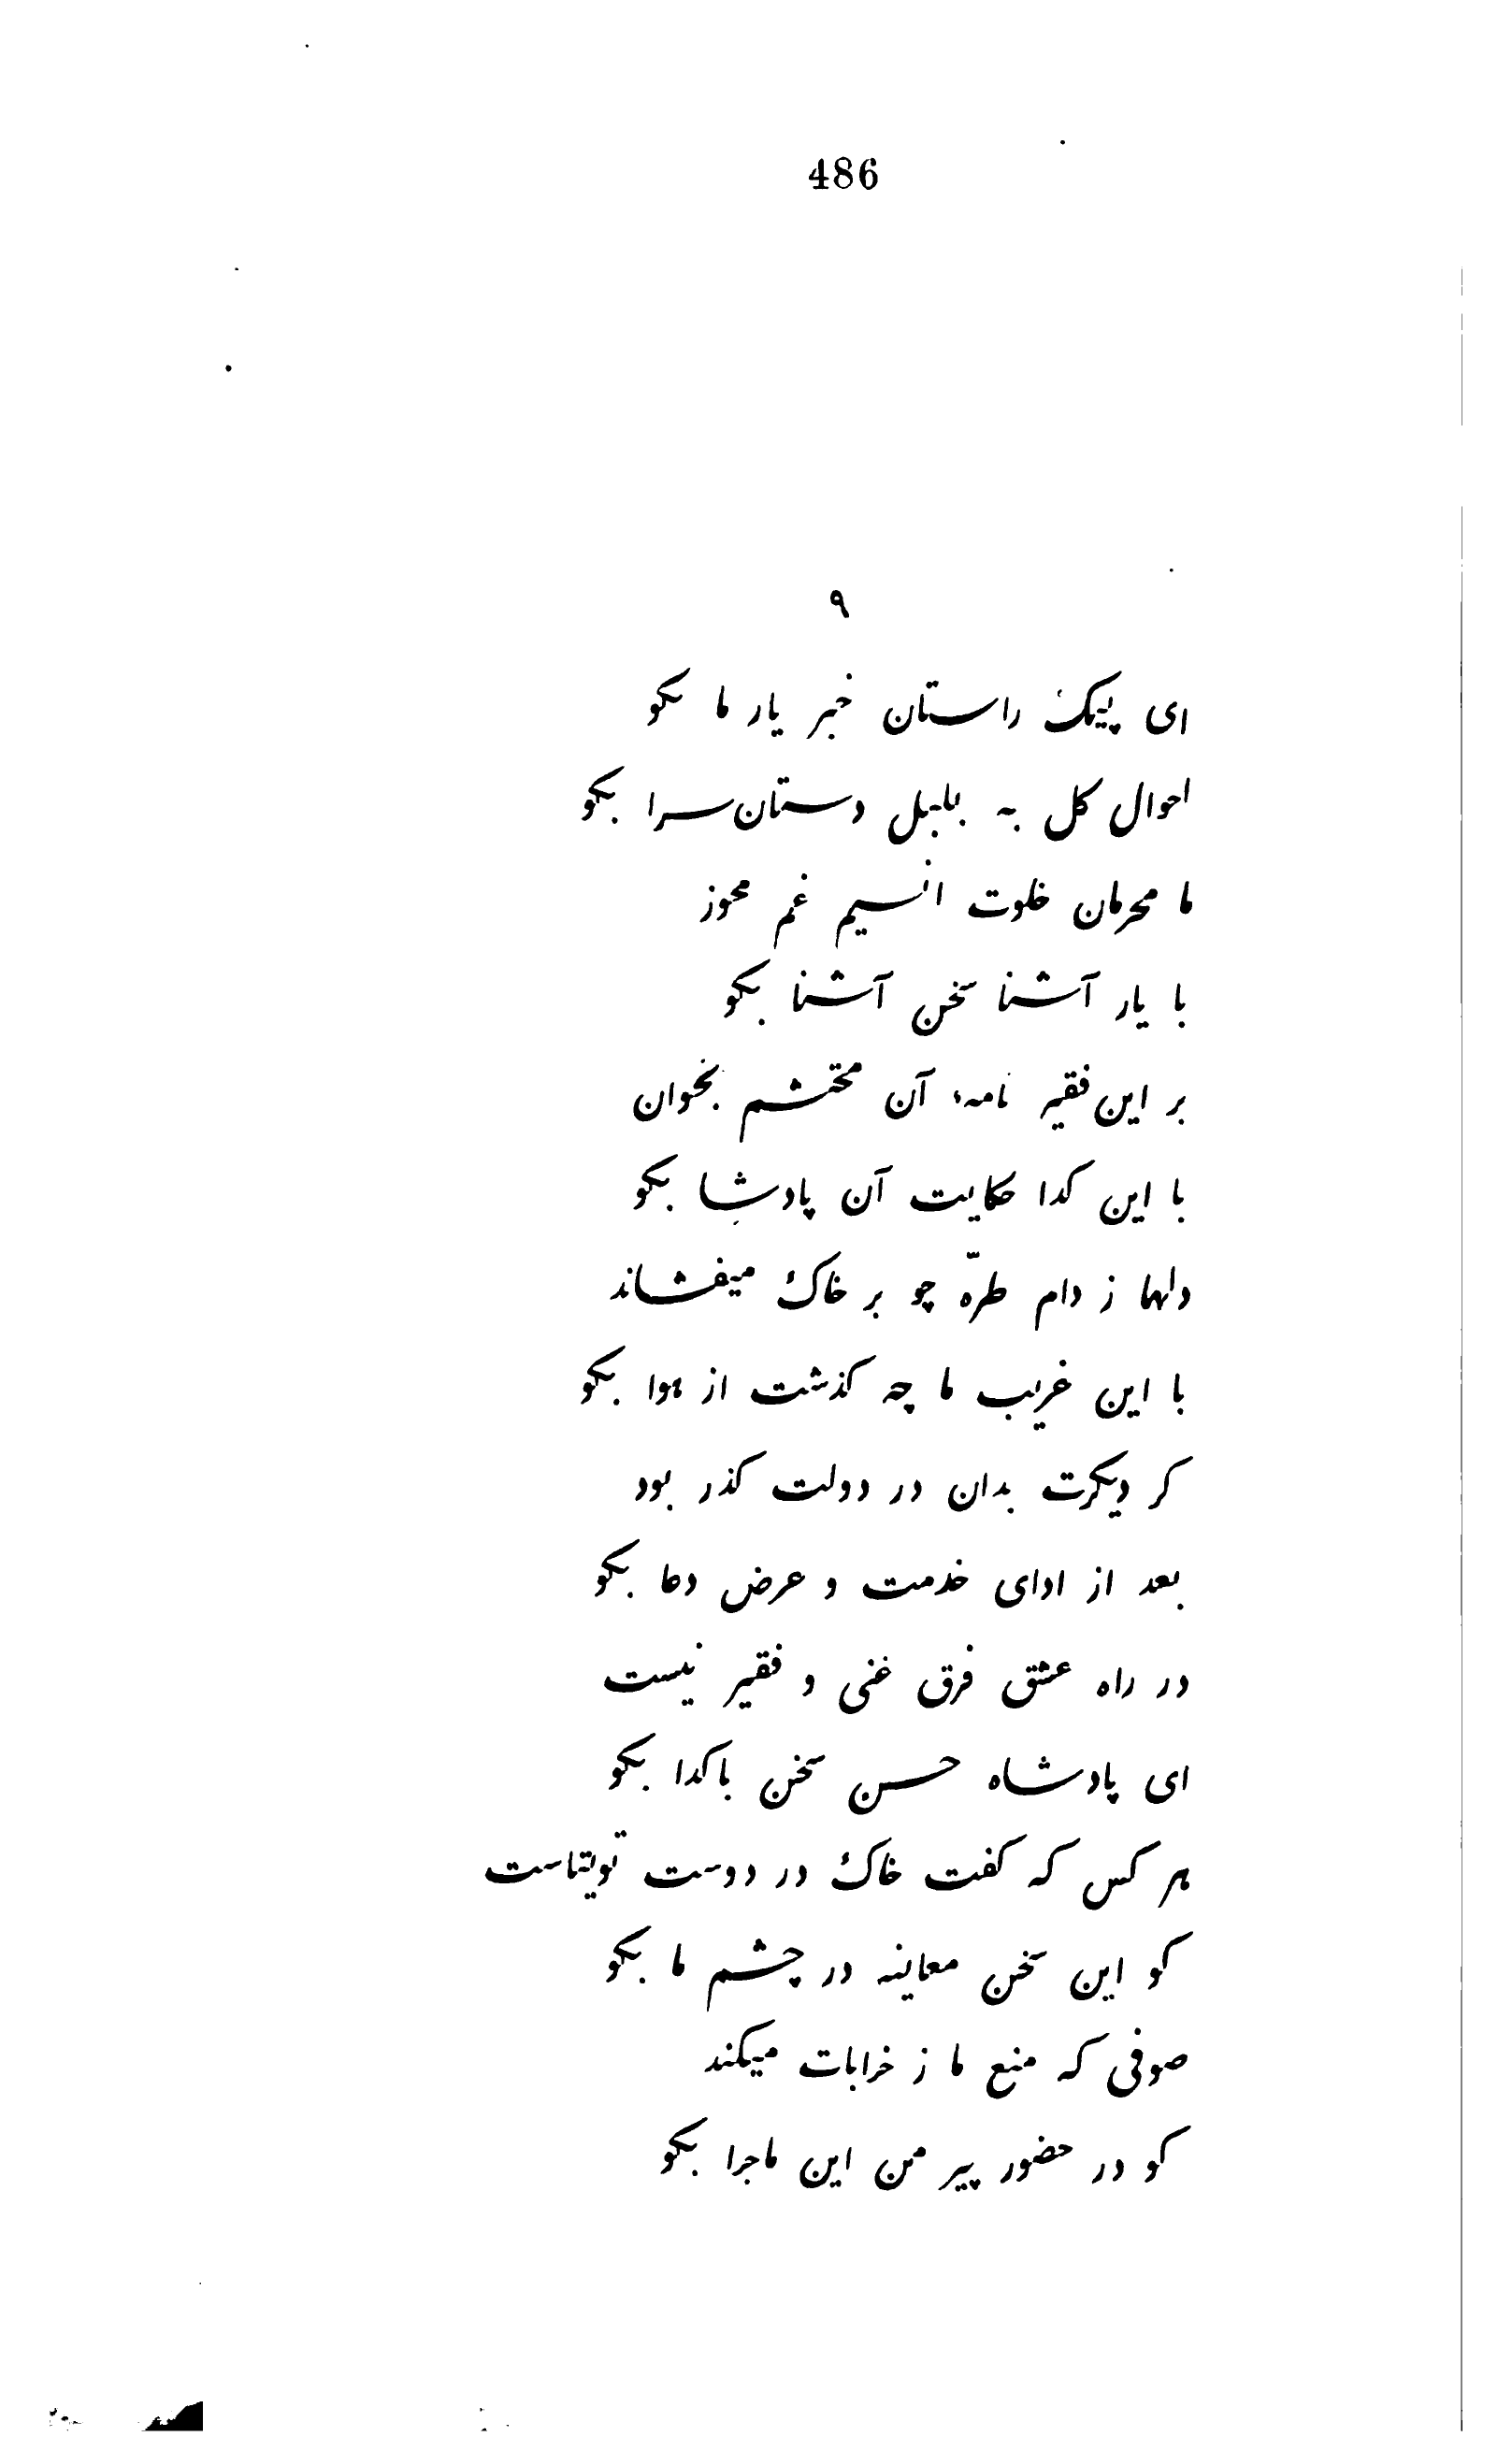 486
٩
ای پیک راستان خبر یار ما بکو
احوال کل به بلبل دستان‌سرا بکو
ما محرمان خلوت انسیم غم مخوز
با یار آشنا سخن آشنا بکو
بر این فقیر نامهٔ آن محتشم بخوان
با این کدا حکایت آن پادشا بکو
دلها ز دام طرّه چو بر خاک میفشاند
با این غریب ما چه کذشت از هوا بکو
کر دیکرت بدان در دولت کذر بود
بعد از ادای خدمت و عرض دعا بکو
در راه عشق فرق غنی و فقیر نیست
ای پادشاه حسن سخن باکدا بکو
هر کس که کفت خاک در دوست توتیاست
کو این سخن معاینه در چشم ما بکو
صوفی که منع ما ز خرابات میکند
کو در حضور پیر من این ماجرا بکو